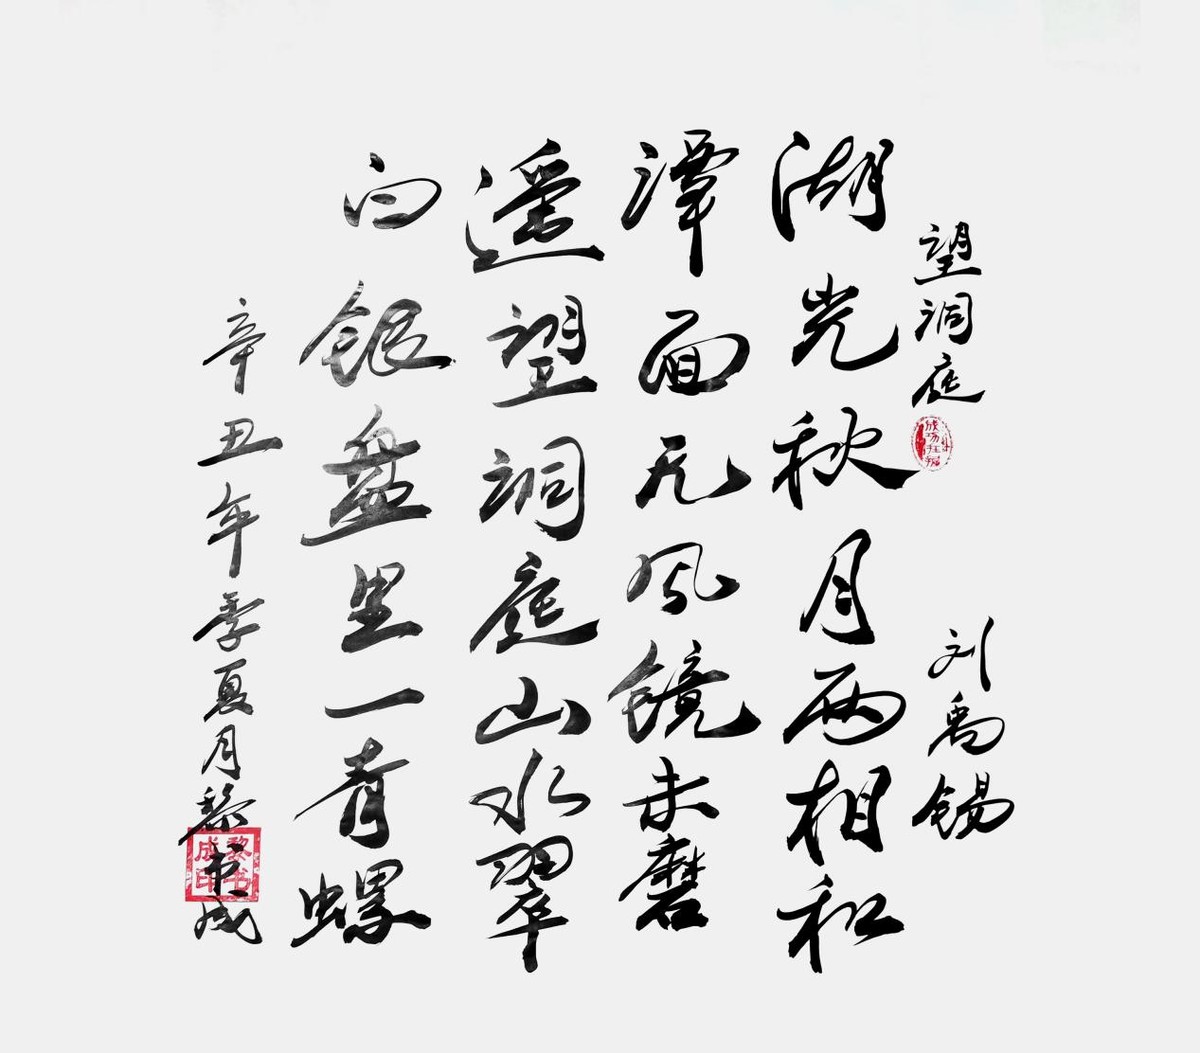 望洞庭 刘禹锡
湖光秋月两相和
潭面无风镜未磨
遥望洞庭山水翠
白银盘里一青螺
辛丑年季夏月黎书成
黎书成印